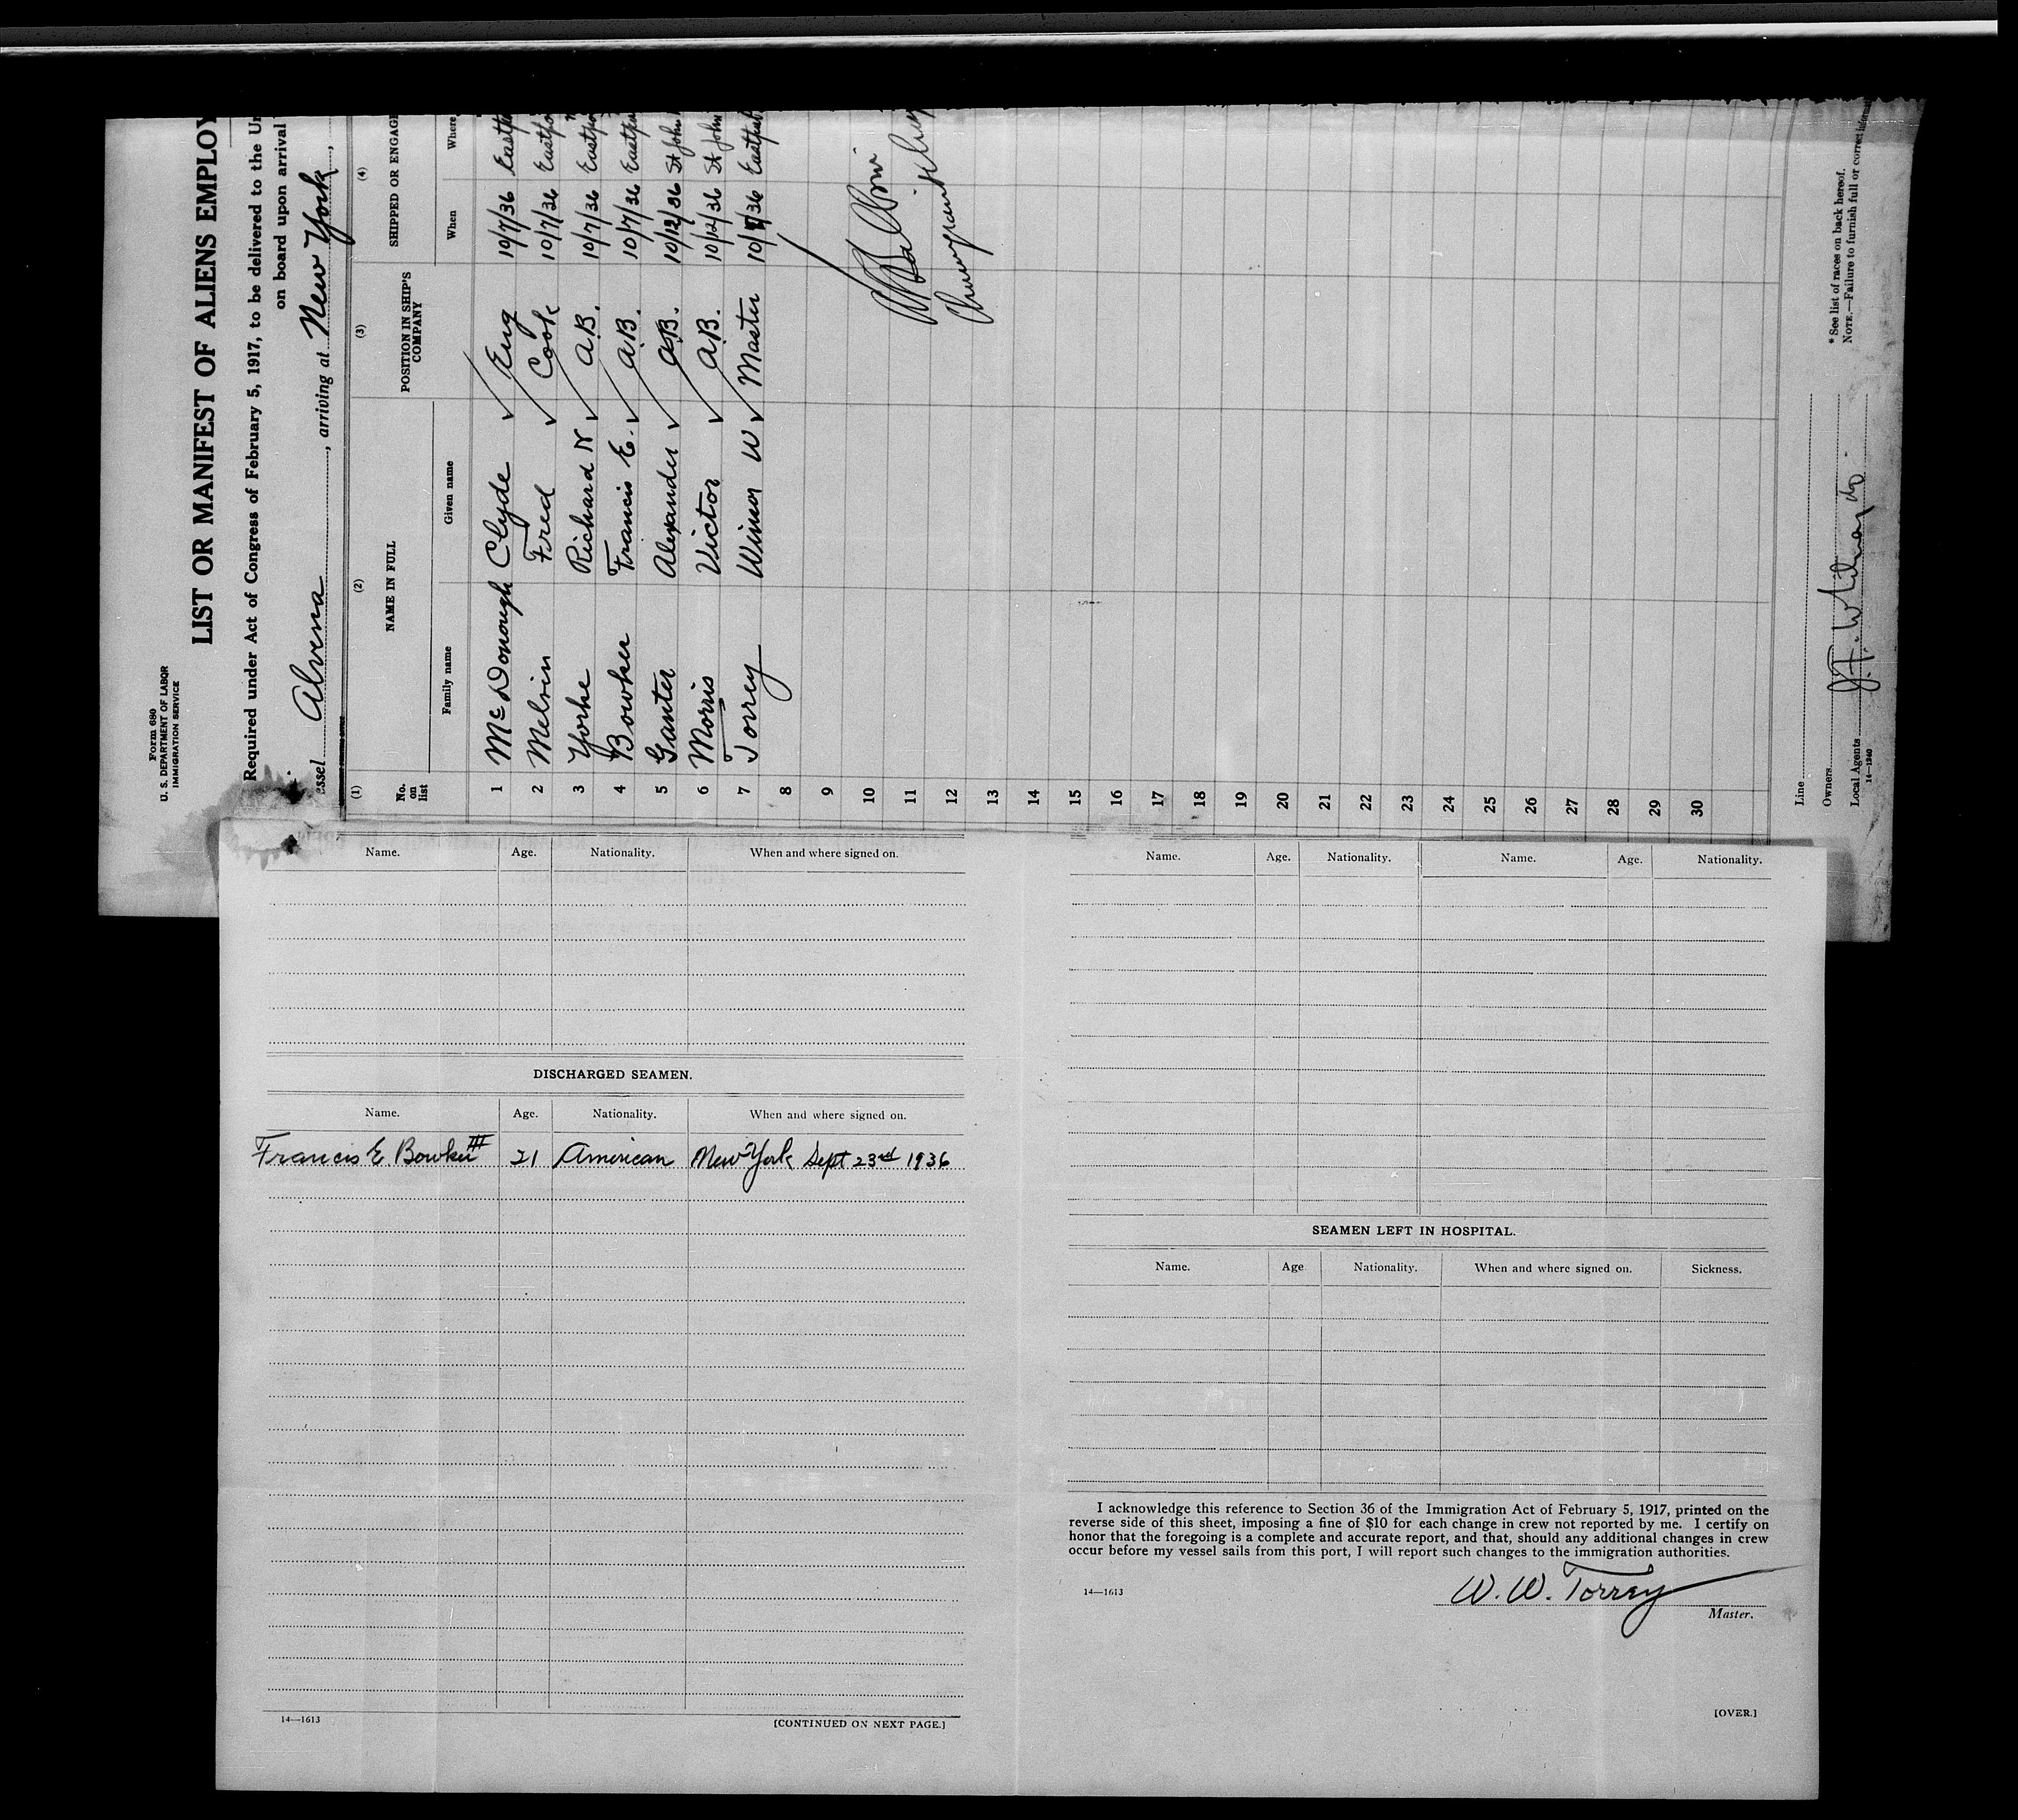 Form 680
U. S. DEPARTMENT OF LABOR
IMMIGRATION SERVICE
LIST OR MANIFEST OF ALIENS EMPLOY
Required under Act of Congress of February 5, 1917, to be delivered to the Un
on board upon arrival
essel Alvena, arriving at New York,
(1) (2) (3) (4)
No. on list NAME IN FULL POSITION IN SHIP'S COMPANY SHIPPED OR ENGAGE
Family name Given name When Where
1 McDonough Clyde Eng 10/7/36 Eastpo
2 Melvin Fred Cook 10/7/36 Eastpo
3 Yorke Richard N A.B. 10/7/36 Eastpo
4 Bowker Francis E. A.B. 10/7/36 Eastpo
5 Ganter Alexander A.B. 10/12/36 St John
6 Morris Victor A.B. 10/12/36 St John
7 Torrey Wimer W Master 10/7/36 Eastpo
8
9
10
11
12
13
14
15
16
17
18
19
20
21
22
23
24
25
26
27
28
29
30
Line
Owners
Local Agents
14—1240
*See list of races on back hereof.
NOTE.—Failure to furnish full or correct inform
Name. Age. Nationality. When and where signed on.
DISCHARGED SEAMEN.
Name. Age. Nationality. When and where signed on.
Francis E. Bowker III 21 American New York Sept 23rd 1936
14—1613 [CONTINUED ON NEXT PAGE.]
Name. Age. Nationality. Name. Age. Nationality.
SEAMEN LEFT IN HOSPITAL.
Name. Age Nationality. When and where signed on. Sickness.
I acknowledge this reference to Section 36 of the Immigration Act of February 5, 1917, printed on the
reverse side of this sheet, imposing a fine of $10 for each change in crew not reported by me. I certify on
honor that the foregoing is a complete and accurate report, and that, should any additional changes in crew
occur before my vessel sails from this port, I will report such changes to the immigration authorities.
14—1613
W. W. Torrey
Master.
[OVER.]